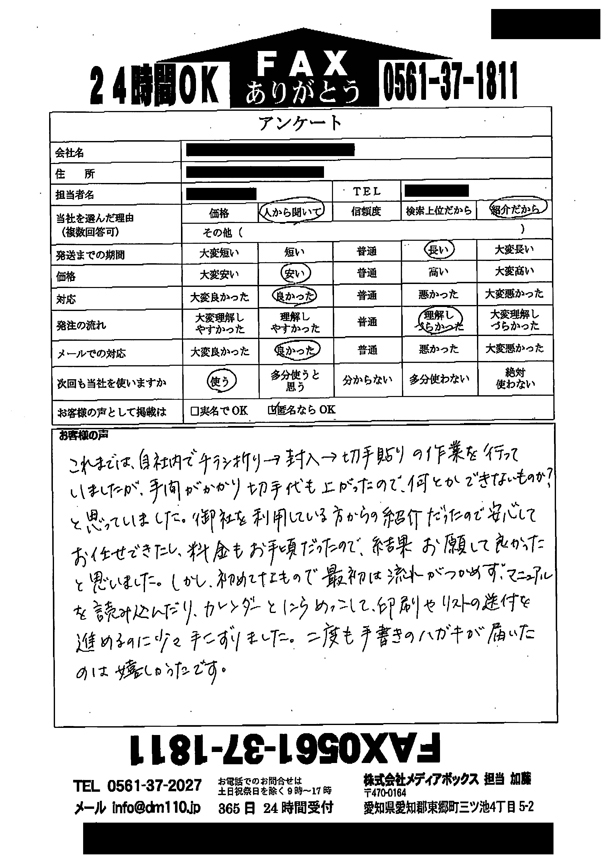 24時間OK
FAX
ありがとう
0561-37-1811
アンケート
会社名
住　所
担当者名 TEL
当社を選んだ理由（複数回答可） 価格 人から聞いて 信頼度 検索上位だから 紹介だから
その他（ ）
発送までの期間 大変短い 短い 普通 長い 大変長い
価格 大変安い 安い 普通 高い 大変高い
対応 大変良かった 良かった 普通 悪かった 大変悪かった
発注の流れ 大変理解しやすかった 理解しやすかった 普通 理解しづらかった 大変理解しづらかった
メールでの対応 大変良かった 良かった 普通 悪かった 大変悪かった
次回も当社を使いますか 使う 多分使うと思う 分からない 多分使わない 絶対使わない
お客様の声として掲載は □実名でOK ☑匿名ならOK
お客様の声
これまでは、自社内でチラシ折り→封入→切手貼りの作業を行って
いましたが、手間がかかり切手代も上がったので、何とかできないものか?
と思っていました。御社を利用している方からの紹介だったので安心して
お任せできたし、料金もお手頃だったので、結果お願して良かった
と思いました。しかし、初めてなもので最初は流れがつかめず、マニュアル
を読み込んだり、カレンダーとにらめっこして、印刷やリストの送付を
進めるのに少々手こずりました。二度も手書きのハガキが届いた
のは嬉しかったです。
FAX0561-37-1811
TEL 0561-37-2027 お電話でのお問合せは 土日祝祭日を除く9時～17時
メール info@dm110.jp 365日24時間受付
株式会社メディアボックス 担当 加藤
〒470-0164
愛知県愛知郡東郷町三ツ池4丁目5-2